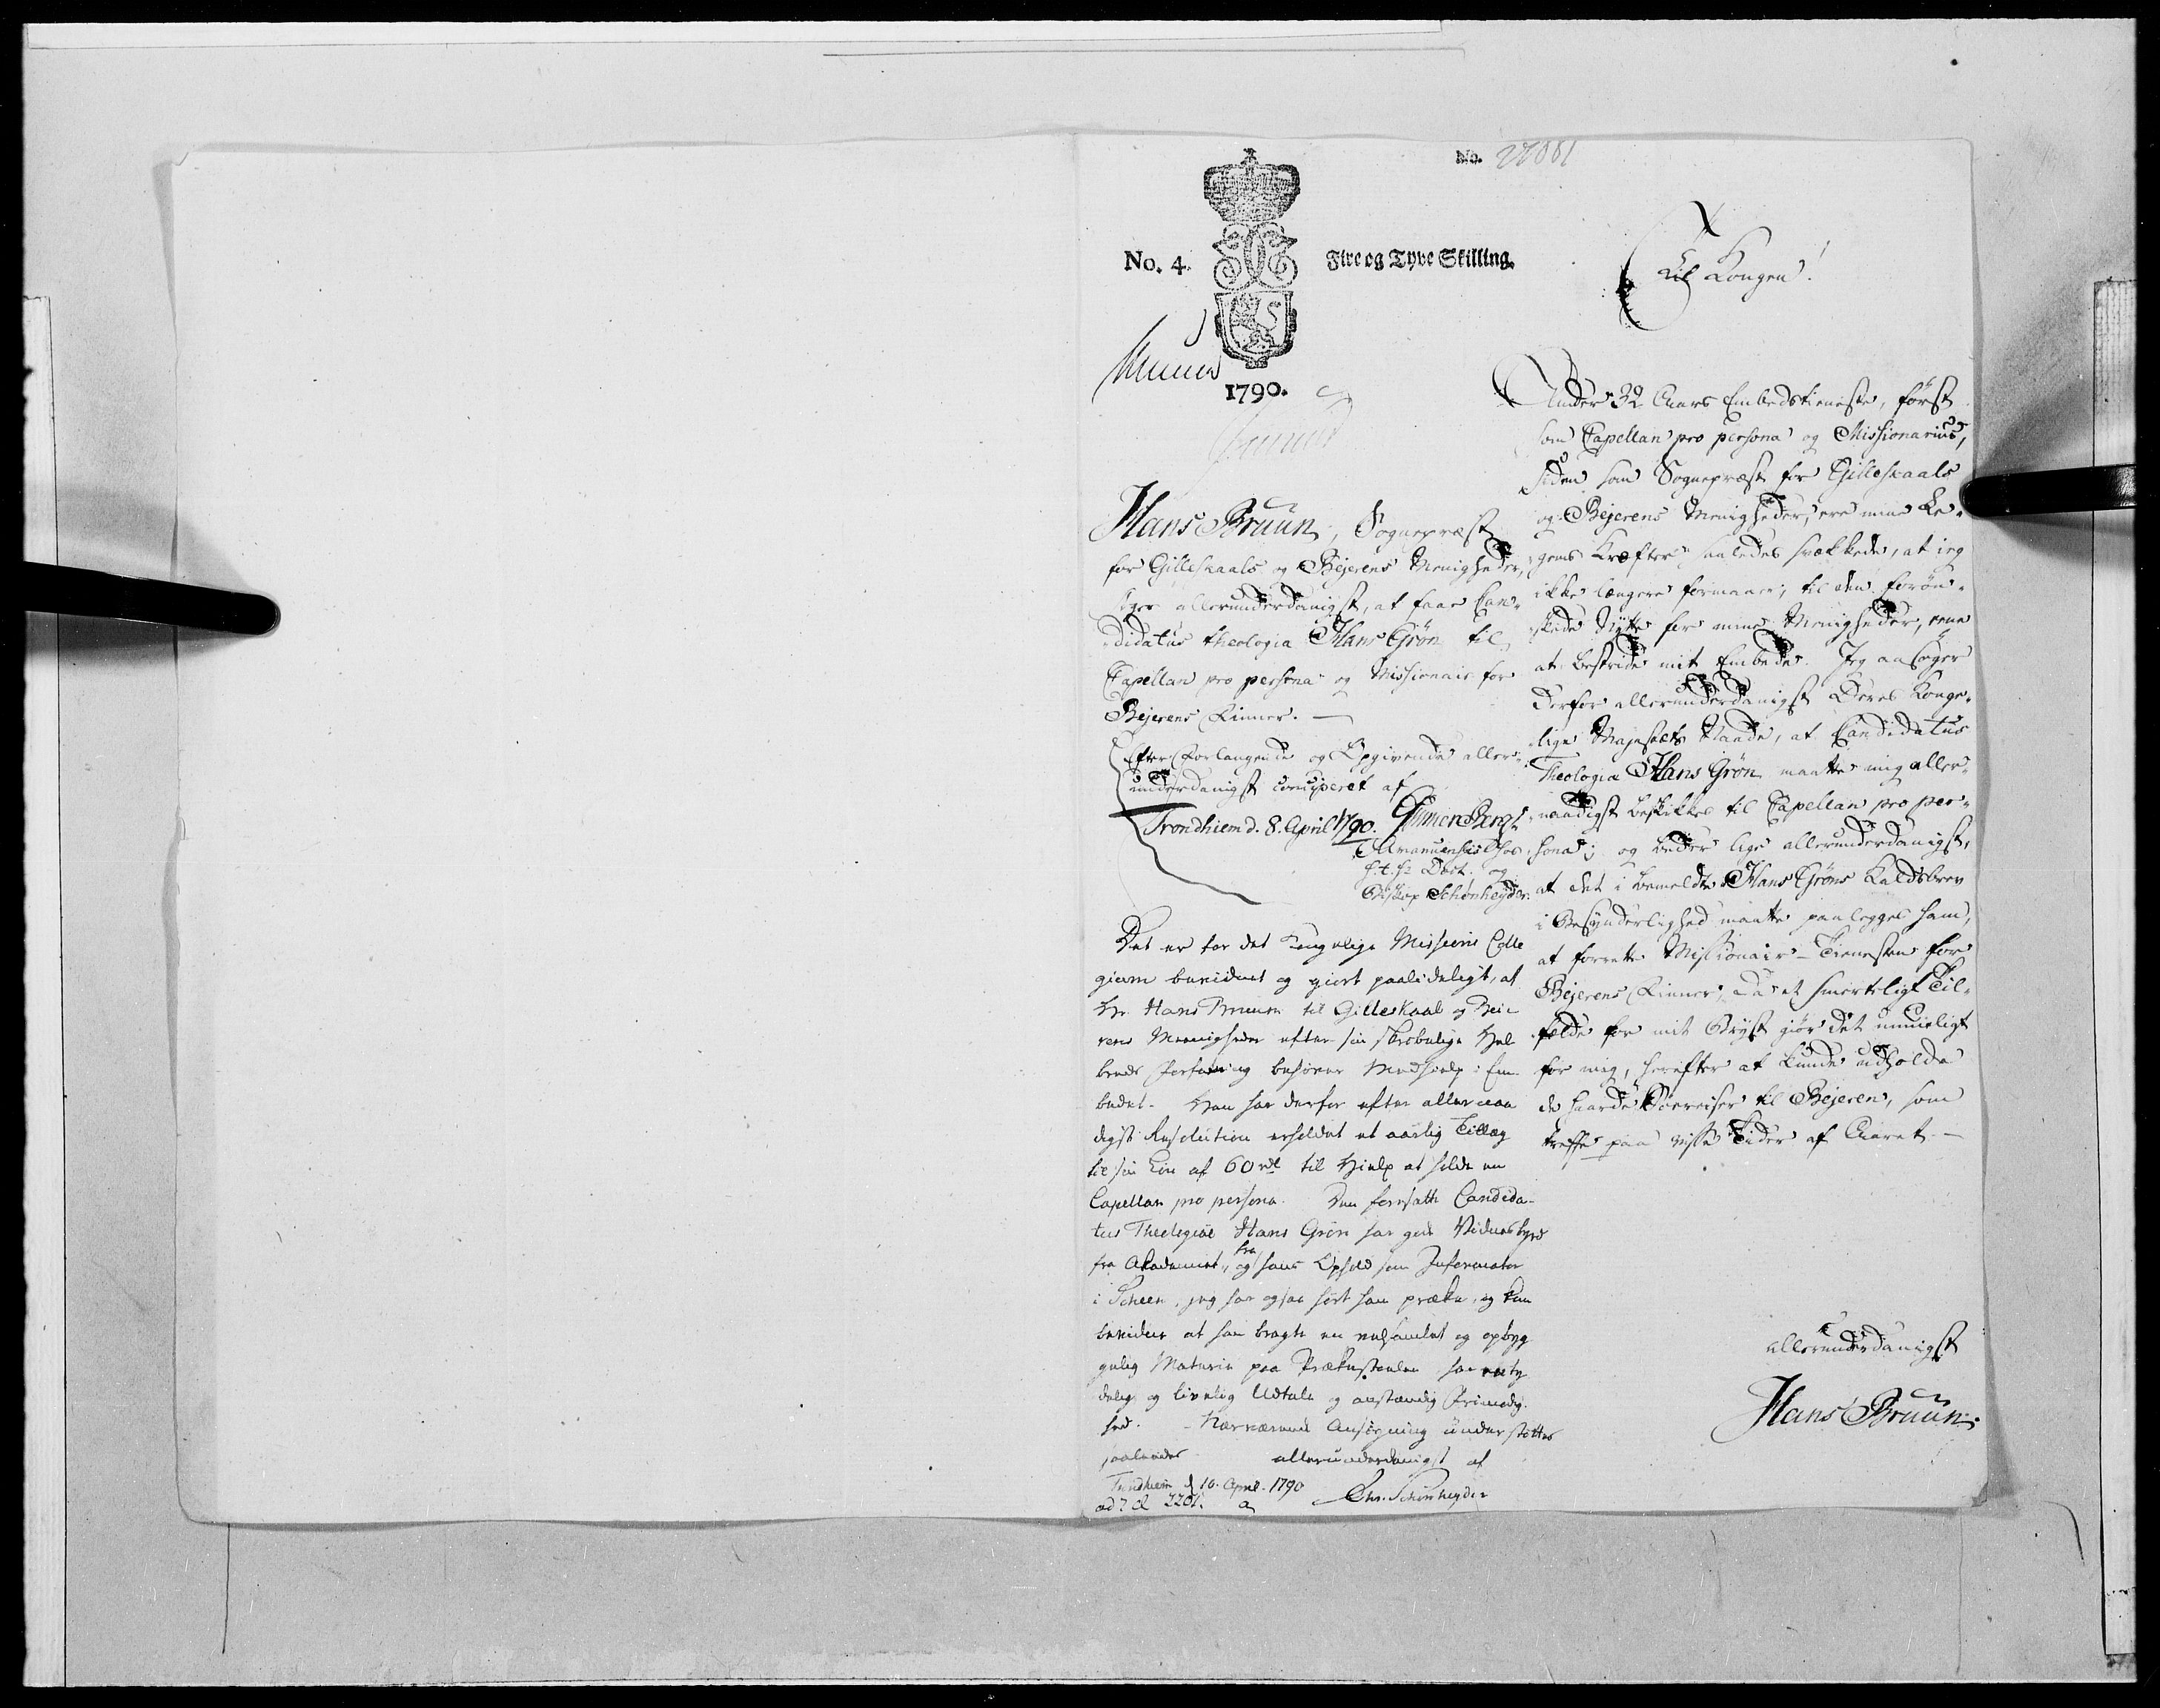 No. 22881
No. 4.
Fire og Tyve Skilling.
1790.
Til Kongen!
Hans Bruun, Sognepræst
for Gilleskaals og Bejerens Menigheder,
søger allerunderdanigst, at faae Can-
didatus theologia Hans Grøn til
Capellan pro persona og Missionair for
Bejerens Finner. —
Efter Forlangende og Opgivende aller-
underdanigst conciperet af
Trondhiem d. 8. April 1790.
Amanuensis hos
S. T. Hr Doct. og
Biskop Schønheyder.
Det er for det Kongelige Missions Colle
gium bevidnet og giort paalideligt, at
Hr. Hans Bruun til Gilleskaal og Bei-
rens Menigheder efter sin skrøbelige Hel
breds Forfatning behøver Medhielp i Em-
bedet. Han har derfor efter allernaa
digst Resolution erholdet et aarlig Tillæg
til sin Løn af 60 rdl til Hielp at holde en
Capellan pro persona. Den foresatte Candida-
tus Theologiæ Hans Grøn har gode Vidnesbyrd
fra Akademiet, og fra hans Ophold som Informator
i Scheen, jeg har ogsaa hørt ham præke, og kan
bevidne at han bragte en velsamlet og opbyg
gelig Materie paa Prækestoelen har en ty
delig og livelig Udtale og anstændig Frimodig-
hed. - Nærværende Ansøgning understøttes
saaledes allerunderdanigst af
Trondhiem d 10. April. 1790
Chr. Schønheyder
Under 32 Aars Embedstieneste, først
som Capellan pro persona og Missionarius,
siden som Sognepræst for Gilleskaals
og Bejerens Menigheder, ere mine Le-
gems Kræfter saaledes svækkede, at jeg
ikke længere formaaer, til den forøn-
skede Nytte for mine Menigheder, ene
at bestride mit Embede. Jeg ansøger
derfor allerunderdanigst Deres Konge-
lige Majestæts Naade, at Candidatus
Theologia Hans Grøn maatte mig aller-
naadigst beskikkes til Capellan pro per-
sona; og beder lige allerunderdanigst,
at det i bemeldte Hans Grøns Kaldsbrev
i Besynderlighed maatte paalegges ham,
at forrette Missionair-Tienesten for
Bejerens Finner, da et smerteligt Til-
fælde for mit Bryst giør det umueligt
for mig, herefter at kunde udholde
de haarde Søereiser til Bejeren, som
treffe paa visse Tider af Aaret. —
allerunderdanigst
Hans Bruun.